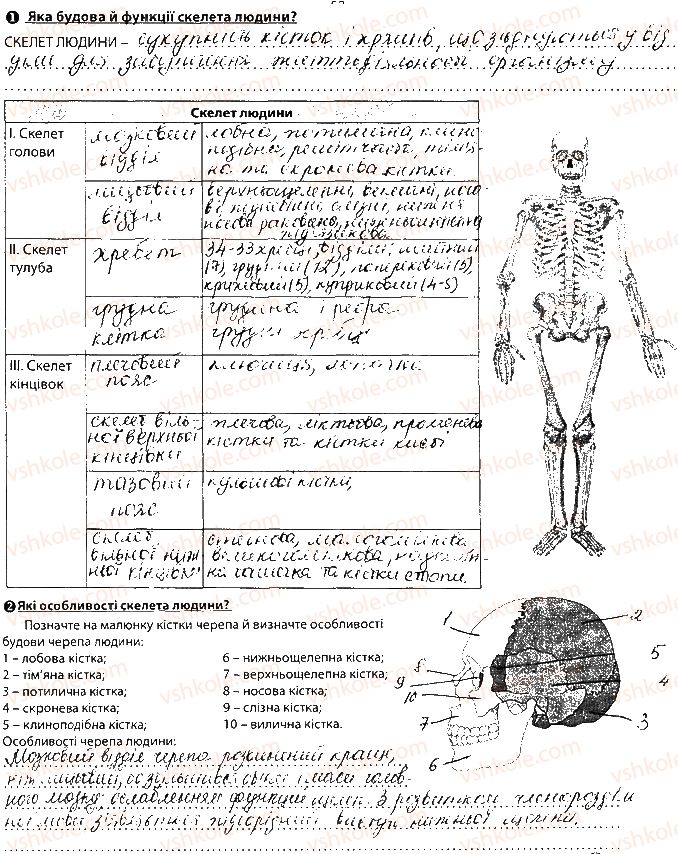 1 Яка будова й функції скелета людини?
СКЕЛЕТ ЛЮДИНИ – сукупність кісток і хрящів, що з'єднуються у від
для забезпечення життєдіяльності організму
Скелет людини
І. Скелет голови
мозковий відділ
лобна, потилична, клино
подібна, решітчаста, тім'я
на та скронева кістки
лицевий відділ
верхньощелепні, величні, носо
ві, піднебінні, слізні, нижня
носова раковина, нижньощелепна
під'язикова
ІІ. Скелет тулуба
хребет
34-33 хребці, відділи, шийний
(7), грудний (12), поперековий (5),
крижовий (5), куприковий (4-5)
грудна клітка
грудина і ребра
грудні хребці
ІІІ. Скелет кінцівок
плечовий пояс
ключиця, лопатка
скелет віль-
ної верхньої
кінцівки
плечова, ліктьова, променева
кістки та кістки кисті
тазовий пояс
кульшові кістки
скелет
вільної ниж
ньої кінцівки
стегнова, малогомілкова
великогомілкова, надколін-
на чашечка та кістки стопи
2 Які особливості скелета людини?
Позначте на малюнку кістки черепа й визначте особливості
будови черепа людини:
1 – лобова кістка;
2 – тім'яна кістка;
3 – потилична кістка;
4 – скронева кістка;
5 – клиноподібна кістка;
6 – нижньощелепна кістка;
7 – верхньощелепна кістка;
8 – носова кістка;
9 – слізна кістка;
10 – вилична кістка.
1
2
5
8
9
4
10
7
3
6
Особливості черепа людини:
Мозковий відділ черепа розвинений краще,
ніж лицевий, бо збільшився об'єм і маса голов-
ного мозку ослаблення функцій щелеп. З розвитком членороздільн
ої мови збільшився підборідний виступ нижньої щелепи.
vshkole.com